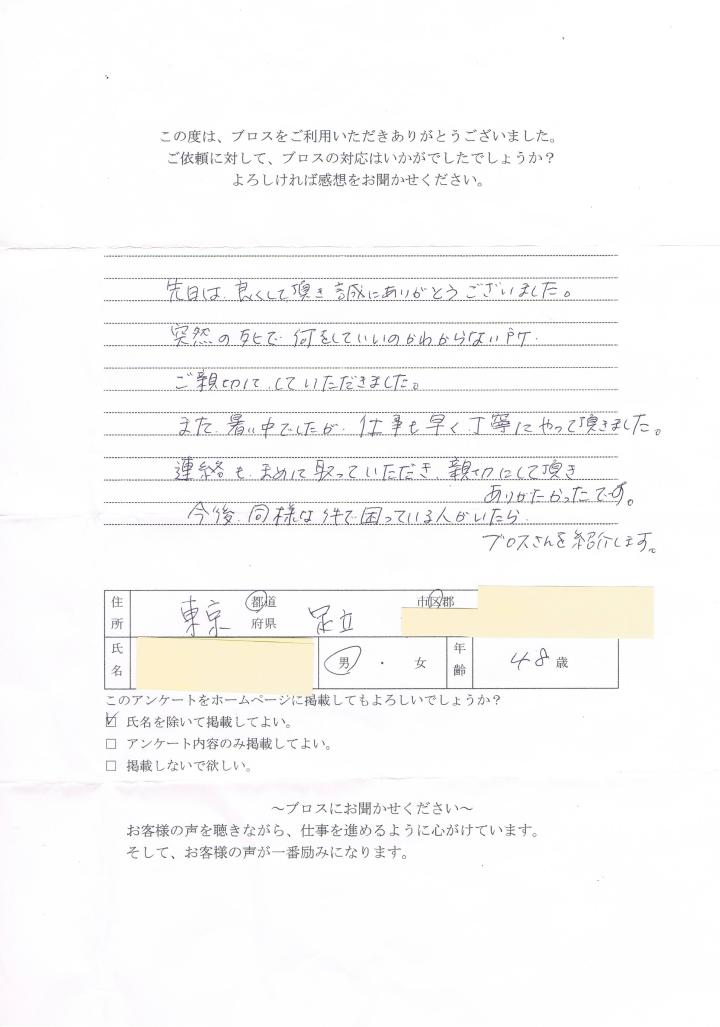 この度は、ブロスをご利用いただきありがとうございました。
ご依頼に対して、ブロスの対応はいかがでしたでしょうか？
よろしければ感想をお聞かせください。
先日は、良くして頂き誠にありがとうございました。
突然の死で何をしていいのかわからない時、
ご親切にしていただきました。
また、暑い中でしたが、仕事も早く、丁寧にやって頂きました。
連絡も、まめに取っていただき、親切にして頂き
ありがたかったです。
今後、同様な件で困っている人がいたら、
ブロスさんを紹介します。
住所 東京 都道府県 足立 市区郡
氏名 男 ・ 女 年齢 48歳
このアンケートをホームページに掲載してもよろしいでしょうか？
☑ 氏名を除いて掲載してよい。
□ アンケート内容のみ掲載してよい。
□ 掲載しないで欲しい。
～ブロスにお聞かせください～
お客様の声を聴きながら、仕事を進めるように心がけています。
そして、お客様の声が一番励みになります。